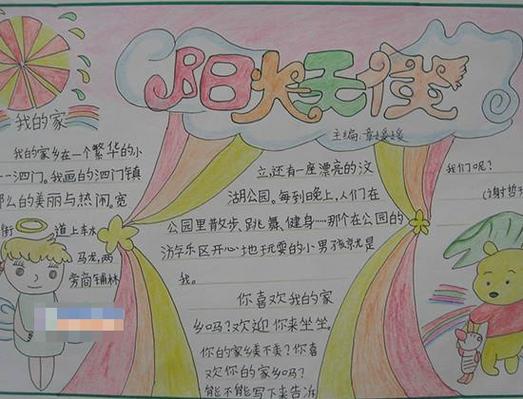 阳光天使
主编:
我的家
我的家乡在一个繁华的小
一泗门。我画的泗门镇
那么的美丽与热闹。宽
街 道上车水
马龙,两
旁商铺林
立,还有一座漂亮的汶
湖公园。每到晚上,人们在
公园里散步、跳舞、健身……那个在公园的
游乐区开心地玩耍的小男孩就是
我。
你喜欢我的家
乡吗?欢迎你来坐坐。
你的家乡美不美?你喜
欢你的家乡吗?
能不能写下来告诉
我们呢?
(谢哲